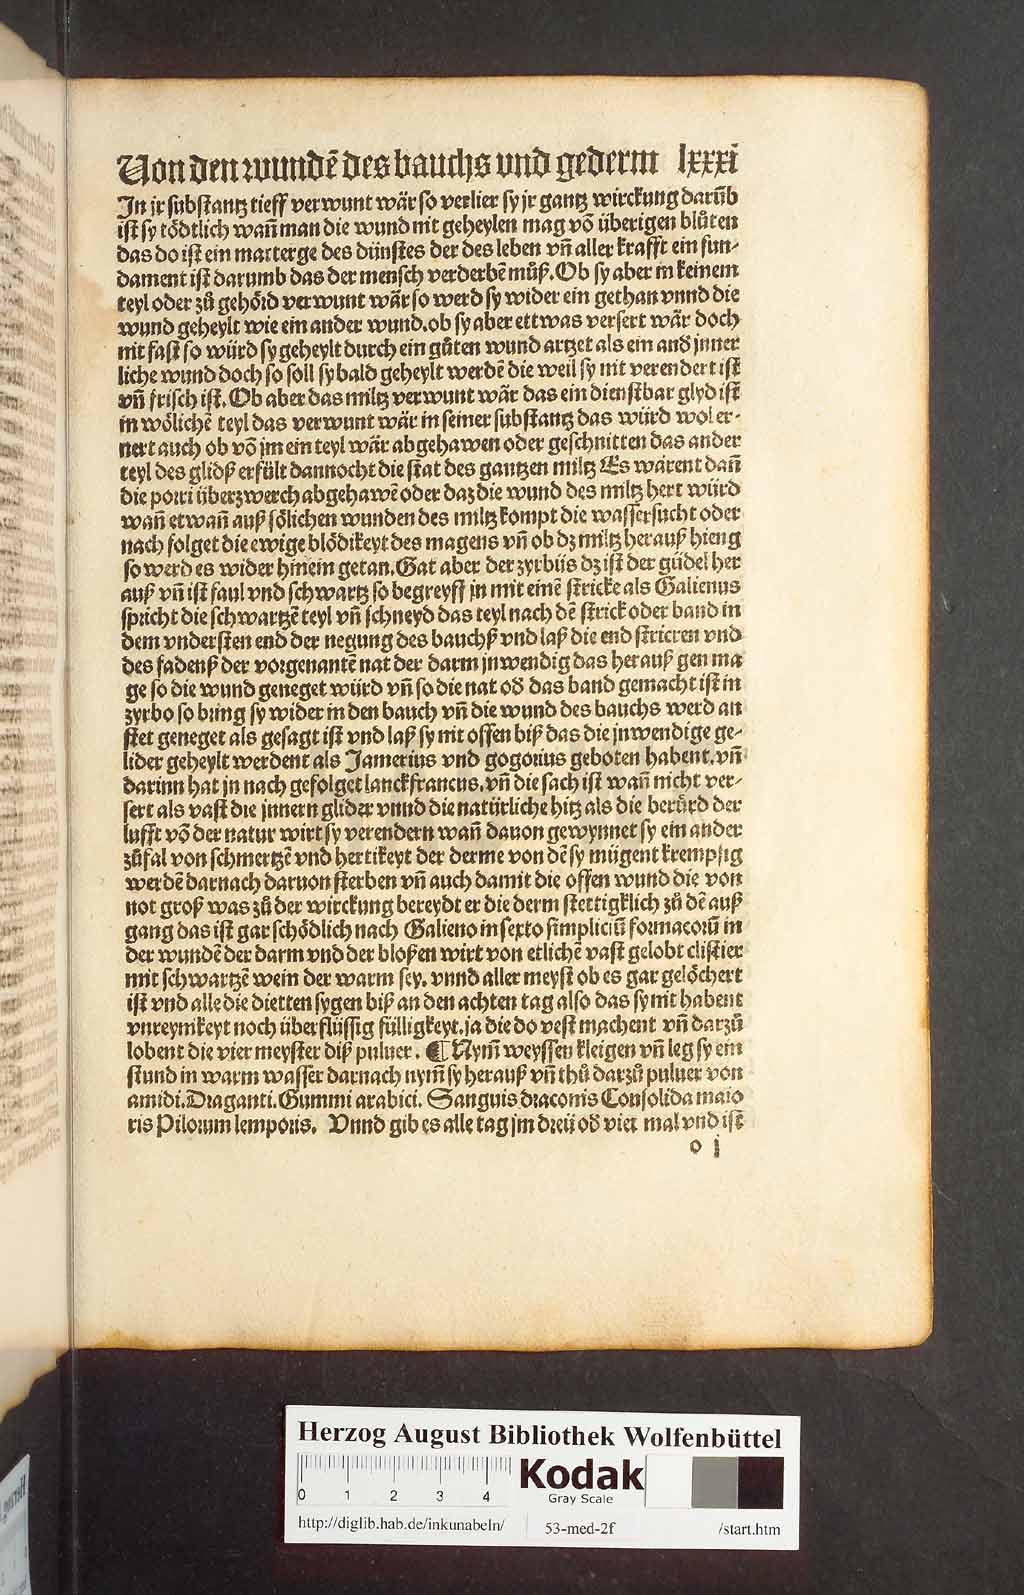 Von den wundē des bauchs vnd gederm lxxxi
In jr substantz tieff verwunt wär so verlier sy jr gantz wirckung darūb
ist sy tödtlich wañ man die wund nit geheylen mag vō überigen blůten
das do ist ein materge des dünstes der des leben vñ aller krafft ein fun-
dament ist darumb das der mensch verderbē můß. Ob sy aber in keinem
teyl oder zů gehörd verwunt wär so werd sy wider ein gethan vnnd die
wund geheylt wie ein ander wund. ob sy aber ettwas versert wär doch
nit fast so würd sy geheylt durch ein gůten wund artzet als ein and jnner
liche wund doch so soll sy bald geheylt werdē die weil sy nit verendert ist
vñ frisch ist. Ob aber das miltz verwunt wär das ein dienstbar glyd ist
in wölichē teyl das verwunt wär in seiner substantz das würd wol er-
nert auch ob vō jm ein teyl wär abgehawen oder geschnitten das ander
teyl des glidß erfült dannocht die stat des gantzen miltz Es wärent dañ
die porri überzwerch abgehawē oder daz die wund des miltz hert würd
wañ etwañ auß sölichen wunden des miltz kompt die wassersucht oder
nach folget die ewige blödikeyt des magens vñ ob dz miltz herauß hieng
so werd es wider hinein getan. Gat aber der zyrbüs dz ist der güdel her
auß vñ ist faul vnd schwartz so begreyff jn mit einē stricke als Galienus
spricht die schwartzē teyl vñ schneyd das teyl nach dē strick oder band in
dem vndersten end der negung des bauchß vnd laß die end stricten vnd
des fadenß der vorgenantē nat der darm jnwendig das herauß gen ma
ge so die wund geneget würd vñ so die nat od das band gemacht ist in
zyrbo so bring sy wider in den bauch vñ die wund des bauchs werd an
stet geneget als gesagt ist vnd laß sy nit offen biß das die jnwendige ge-
lider geheylt werdent als Jamerius vnd gogorius geboten habent. vñ
darinn hat jn nach gefolget lanckfrancus. vñ die sach ist wañ nicht ver-
sert als vast die jnnern glider vnnd die natürliche hitz als die berürd der
lufft vō der natur wirt sy verendern wañ dauon gewynnet sy ein ander
zůfal von schmertzē vnd hertikeyt der derme von dē sy mügent krempfig
werdē darnach daruon sterben vñ auch damit die offen wund die von
not groß was zů der wirckung bereydt er die derm stettigklich zů dē auß
gang das ist gar schödlich nach Galieno in sexto simpliciū formacorū in
der wundē der darm vnd der bloßen wirt von etlichē vast gelobt clistier
mit schwartzē wein der warm sey. vnnd aller meyst ob es gar gelöchert
ist vnd alle die dietten sygen biß an den achten tag also das sy nit habent
vnreymkeyt noch überflüssig fülligkeyt. ja die do vest machent vñ darzů
lobent die vier meyster diß puluer. ¶ Nym̄ weyssen kleigen vñ leg sy ein
stund in warm wasser darnach nym̄ sy herauß vñ thů darzů puluer von
amidi. Draganti. Gummi arabici. Sanguis draconis Consolida maio
ris Pilorum lemporis. Vnnd gib es alle tag jm dreü od vier mal vnd ist
o j
Herzog August Bibliothek Wolfenbüttel
0 1 2 3 4 Kodak
Gray Scale
http://diglib.hab.de/inkunabeln/ 53-med-2f /start.htm